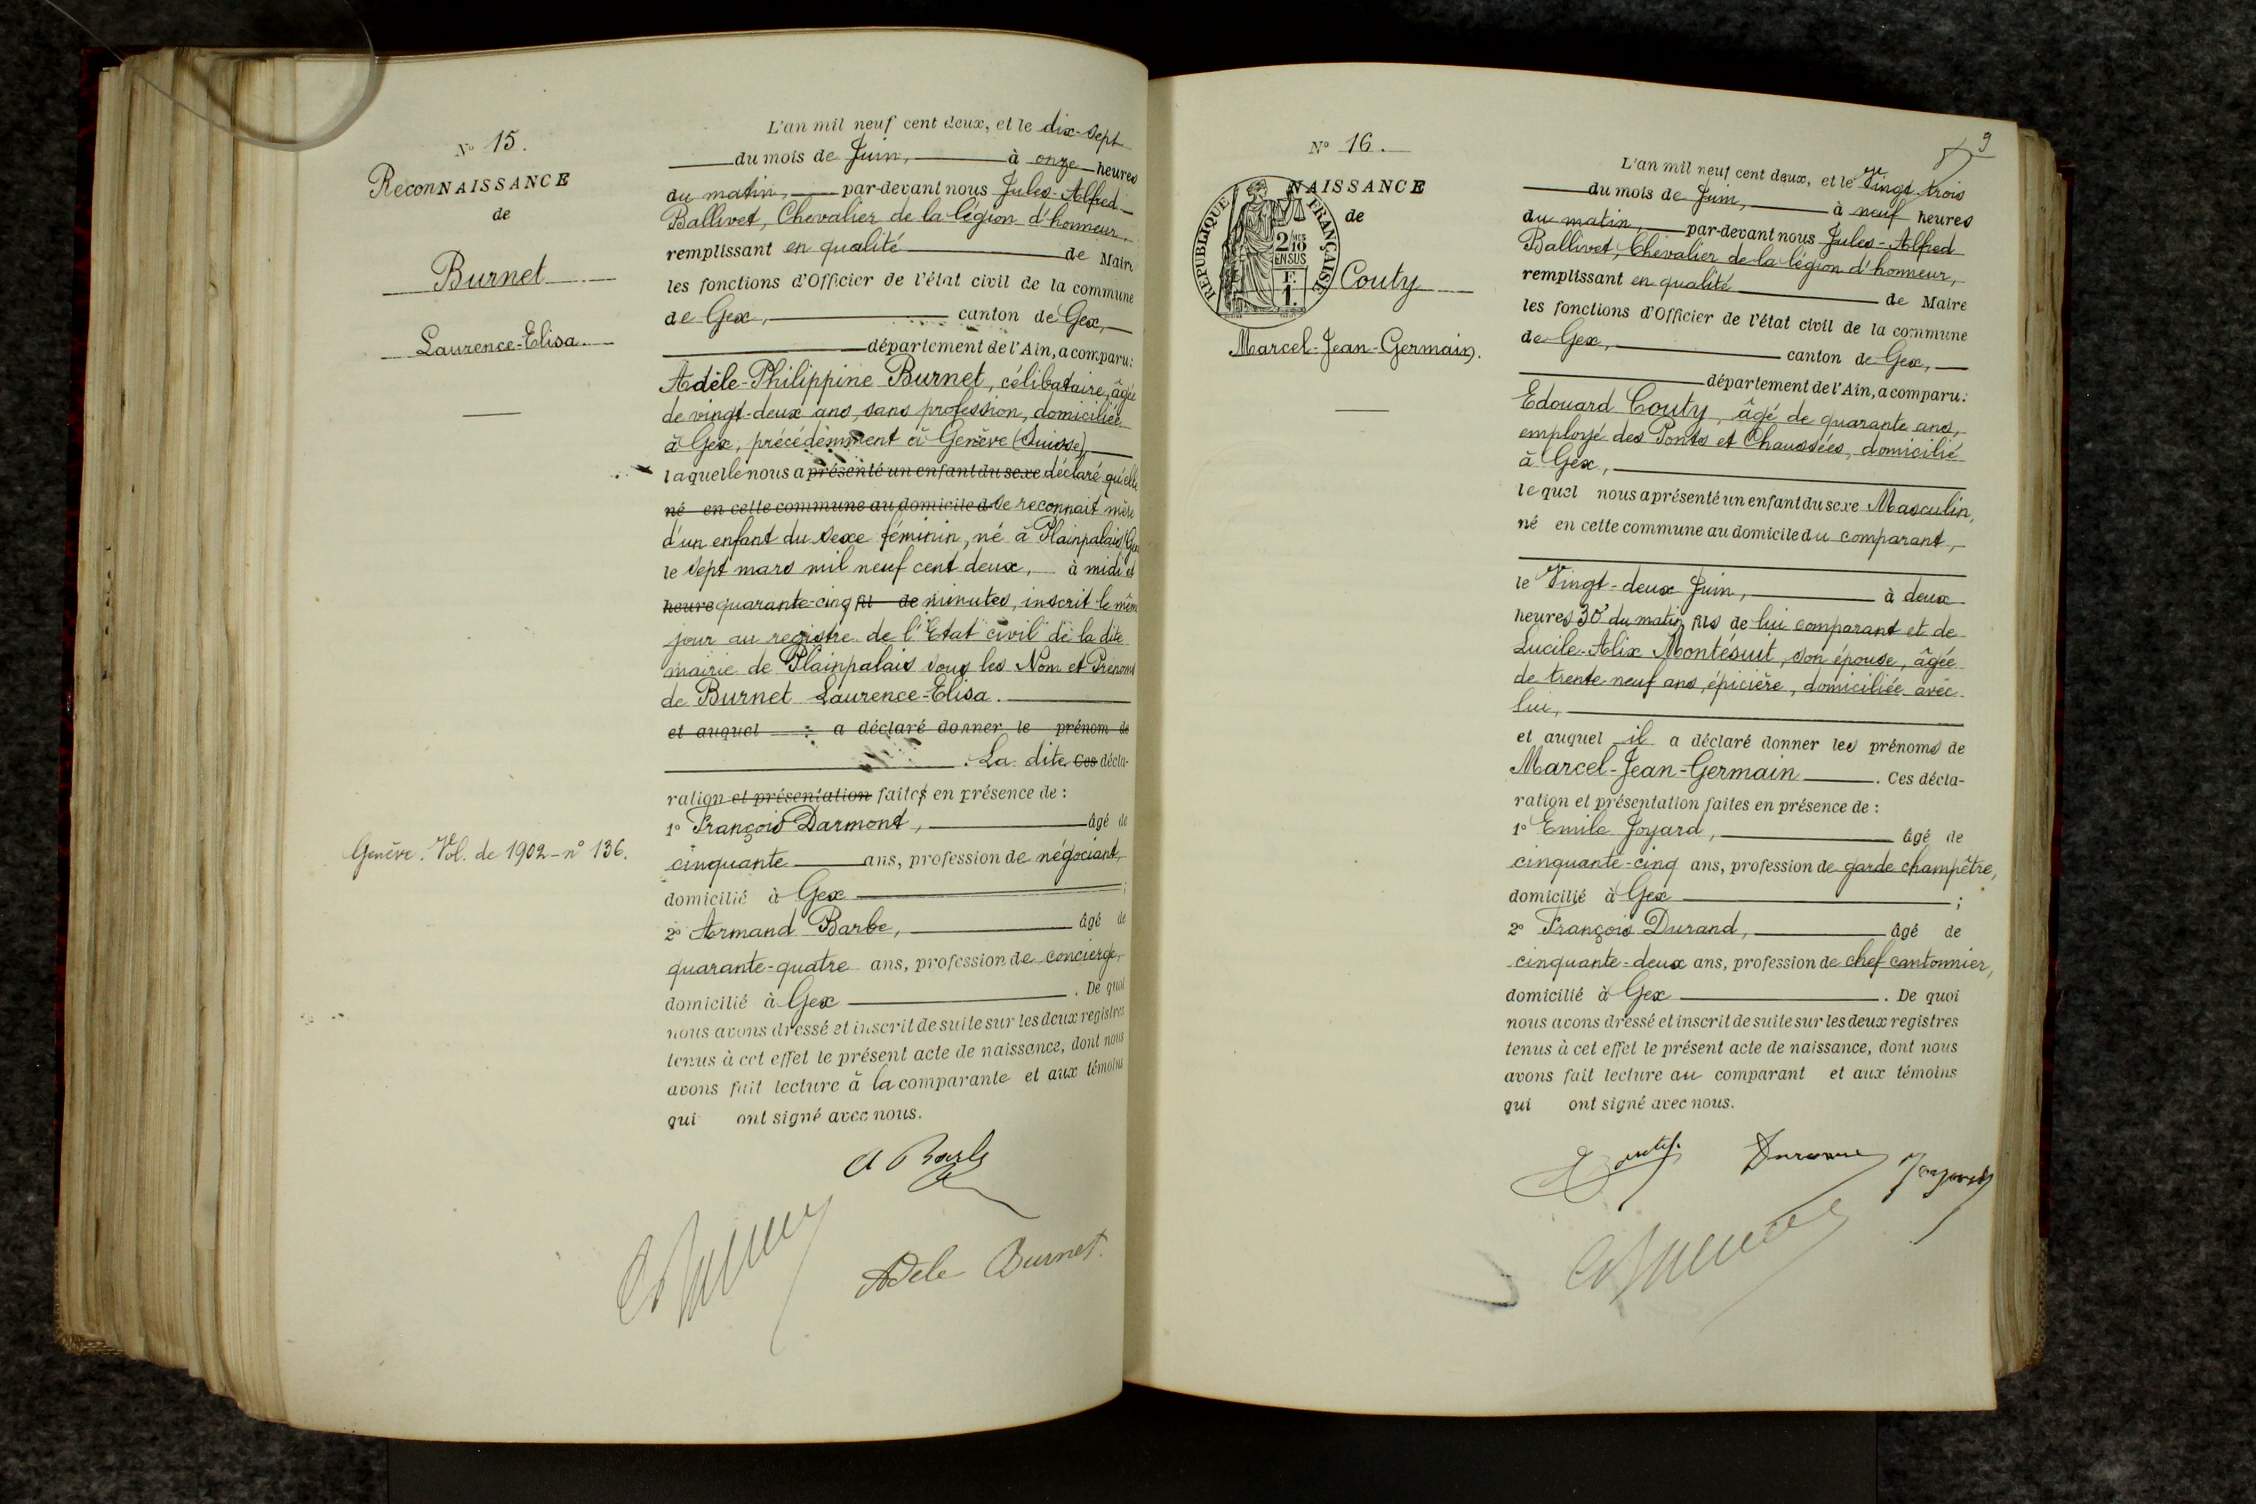 Nº 15.
ReconNAISSANCE
de
Burnet
Laurence-Elisa
Genève. Vol. de 1902 - nº 136.
L'an mil neuf cent deux, et le dix-sept
du mois de Juin, à onze heures
du matin, par-devant nous Jules-Alfred
Ballivet, Chevalier de la légion d'honneur,
remplissant en qualité de Maire
les fonctions d'Officier de l'état civil de la commune
de Gex, canton de Gex,
département de l'Ain, a comparu:
Adèle-Philippine Burnet, célibataire, âgée
de vingt-deux ans, sans profession, domiciliée
à Gex, précédemment à Genève (Suisse),
laquelle nous a présenté un enfant du sexe déclaré qu'elle
né en cette commune au domicile d se reconnait mère
d'un enfant du sexe féminin, né à Plainpalais
le sept mars mil neuf cent deux, à midi et
heure quarante-cinq fil de minutes, inscrit le même
jour au registre de l'Etat civil de la dite
mairie de Plainpalais sous les Nom et Prénoms
de Burnet Laurence-Elisa.
et auquel a déclaré donner le prénom de
. La dite Ces décla-
ration et présentation faites en présence de :
1º François Darmont, âgé de
cinquante ans, profession de négociant,
domicilié à Gex ;
2º Armand Barbe, âgé de
quarante-quatre ans, profession de concierge,
domicilié à Gex . De quoi
nous avons dressé et inscrit de suite sur les deux registres
tenus à cet effet le présent acte de naissance, dont nous
avons fait lecture à la comparante et aux témoins
qui ont signé avec nous.
A Barbe
Adèle Burnet.
9
Nº 16.
NAISSANCE
de
RÉPUBLIQUE FRANÇAISE
2/10 MES
EN SUS
F.
1.
Couty
Marcel-Jean-Germain.
L'an mil neuf cent deux, et le Vingt-trois
du mois de Juin, à neuf heures
du matin, par-devant nous Jules-Alfred
Ballivet, Chevalier de la légion d'honneur,
remplissant en qualité de Maire
les fonctions d'Officier de l'état civil de la commune
de Gex, canton de Gex,
département de l'Ain, a comparu:
Edouard Couty, âgé de quarante ans,
employé des Ponts et Chaussées, domicilié
à Gex,
lequel nous a présenté un enfant du sexe Masculin,
né en cette commune au domicile du comparant,
le Vingt-deux Juin, à deux
heures 30' du matin fils de lui comparant et de
Lucile-Alix Montésuit, son épouse, âgée
de trente neuf ans, épicière, domiciliée avec
lui,
et auquel il a déclaré donner les prénoms de
Marcel-Jean-Germain . Ces décla-
ration et présentation faites en présence de :
1º Emile Joyard, âgé de
cinquante-cinq ans, profession de garde champêtre,
domicilié à Gex ;
2º François Durand, âgé de
cinquante-deux ans, profession de chef cantonnier,
domicilié à Gex . De quoi
nous avons dressé et inscrit de suite sur les deux registres
tenus à cet effet le présent acte de naissance, dont nous
avons fait lecture au comparant et aux témoins
qui ont signé avec nous.
Couty Durand Joyard